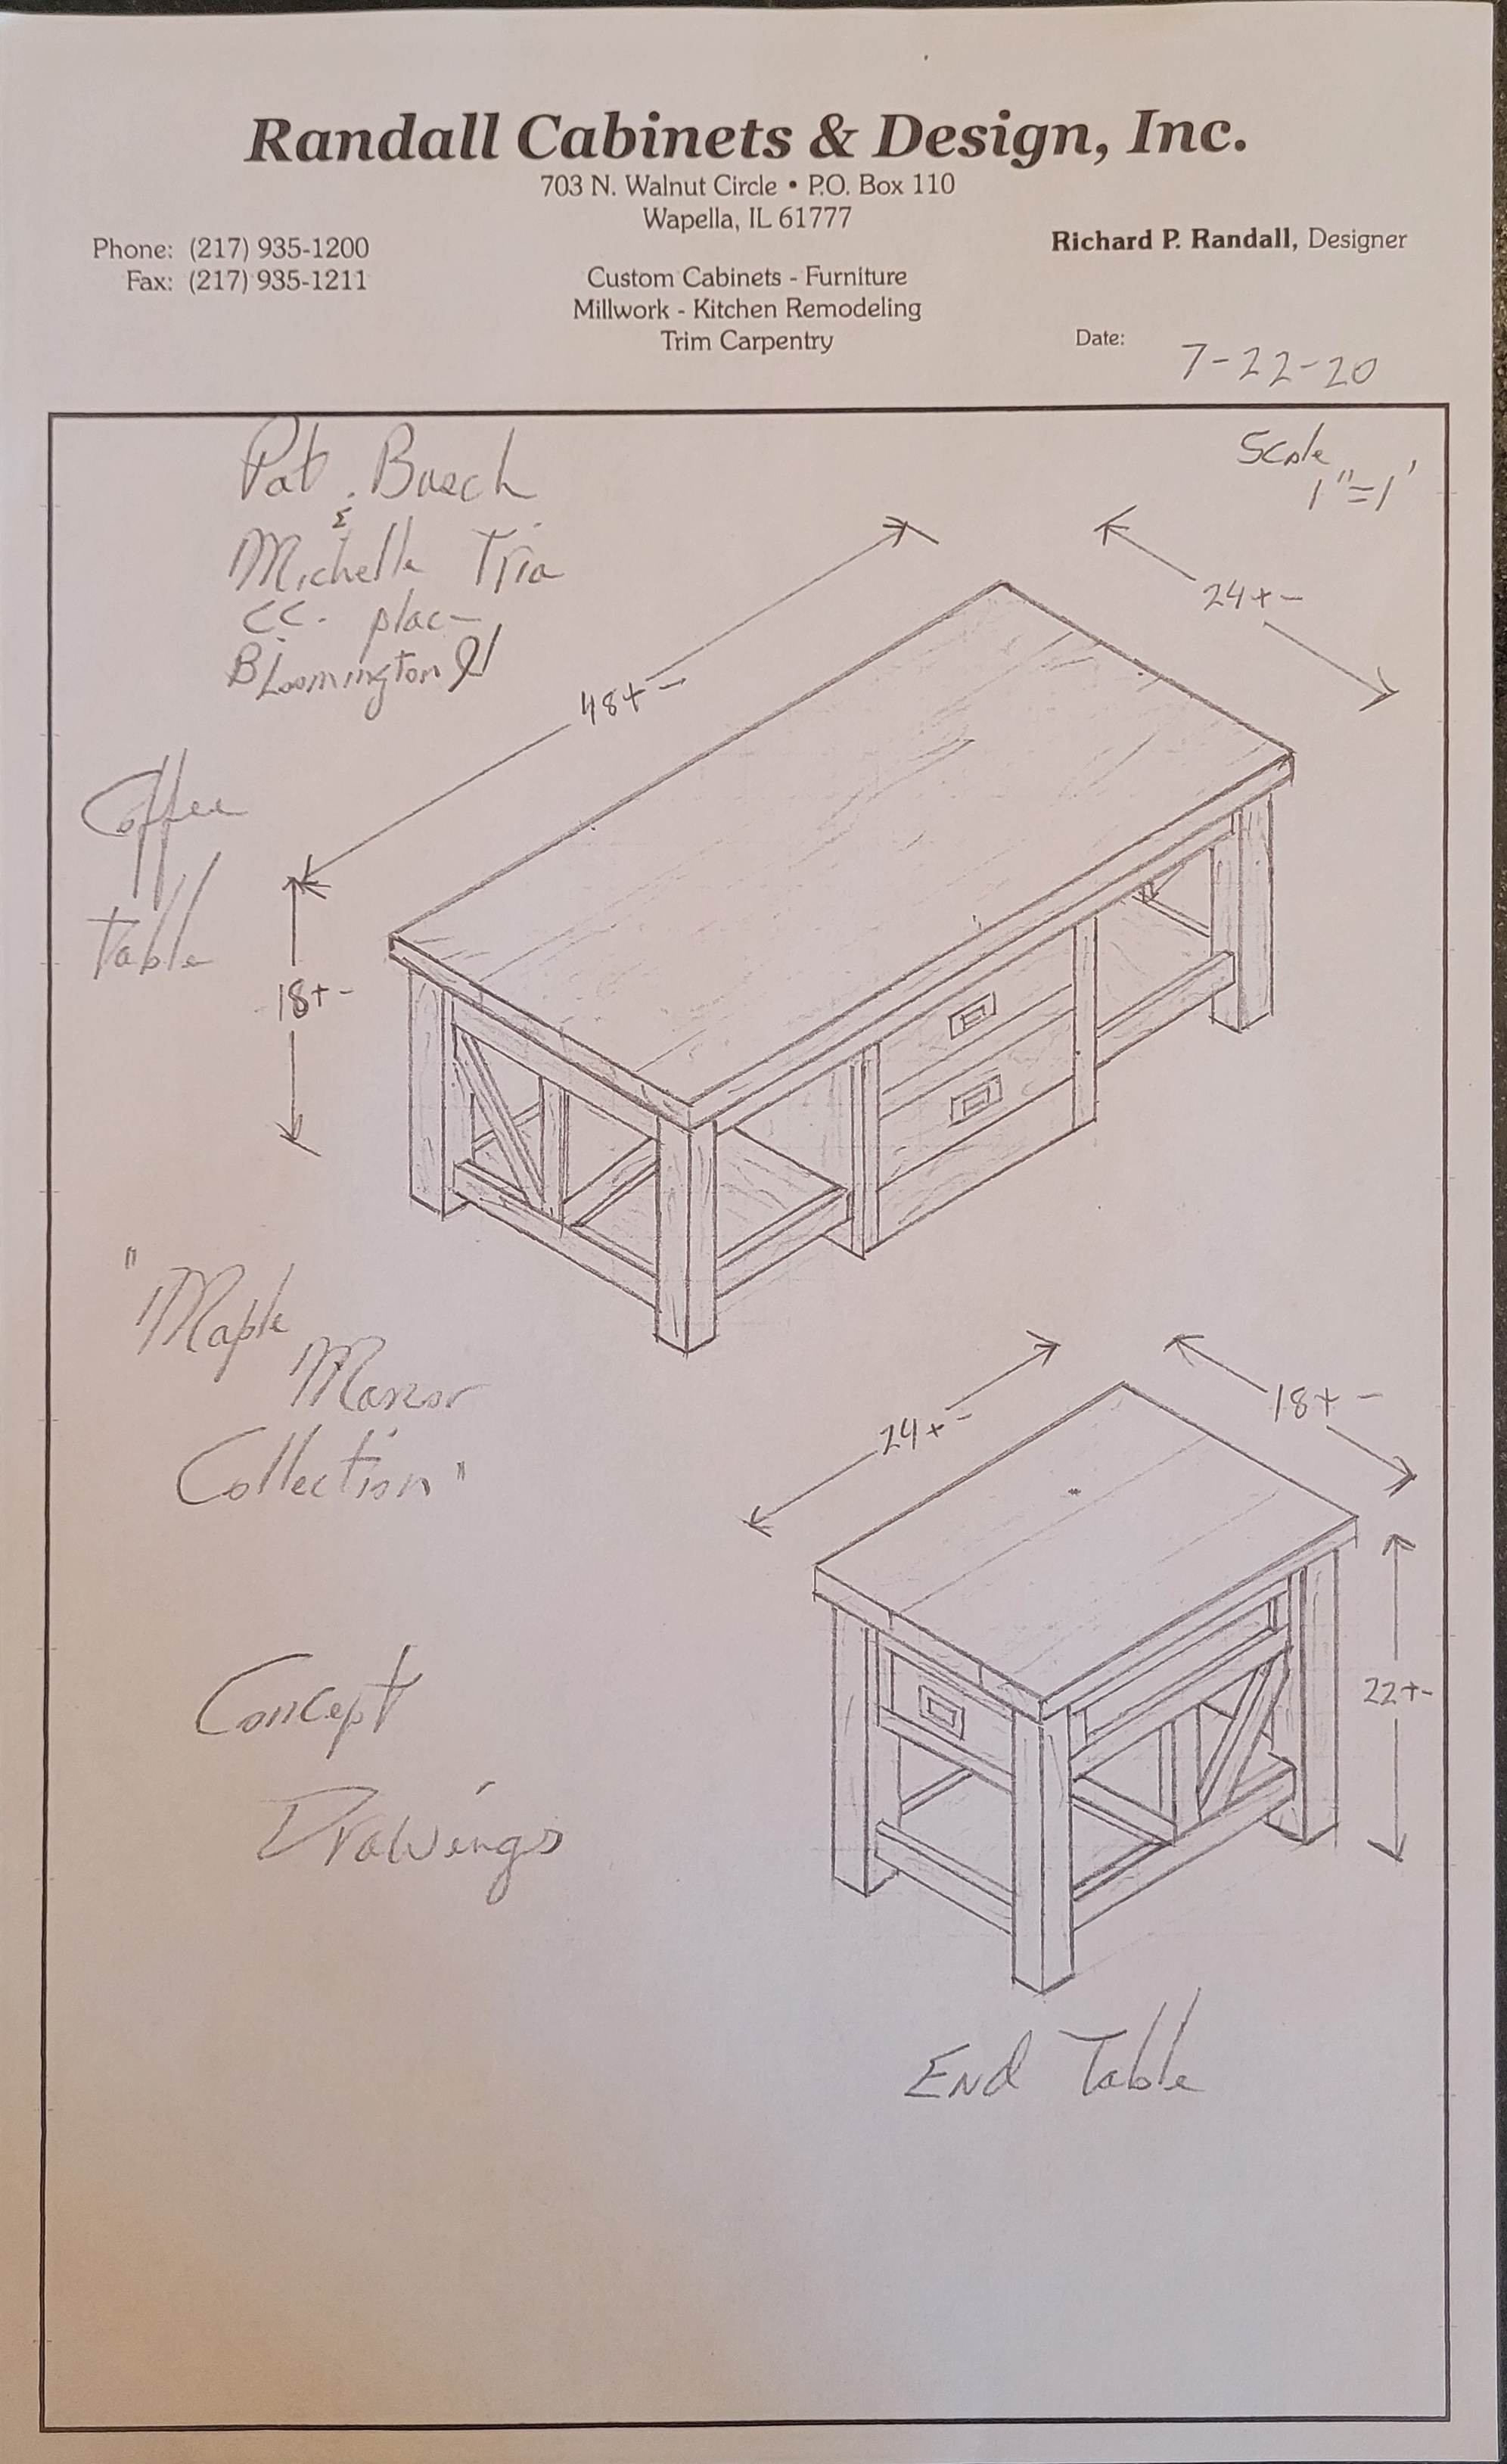 Randall Cabinets & Design, Inc.
703 N. Walnut Circle • P.O. Box 110
Wapella, IL 61777
Phone: (217) 935-1200
Fax: (217) 935-1211
Richard P. Randall, Designer
Custom Cabinets - Furniture
Millwork - Kitchen Remodeling
Trim Carpentry
Date: 7-22-20
Scale
1"=1'
Pat Busch
&
Michelle Tria
CC. plac
Bloomington Il
24+-
48+-
Coffee
Table
18+-
"Maple
Manor
Collection"
24+-
18+-
22+-
Concept
Drawings
End Table